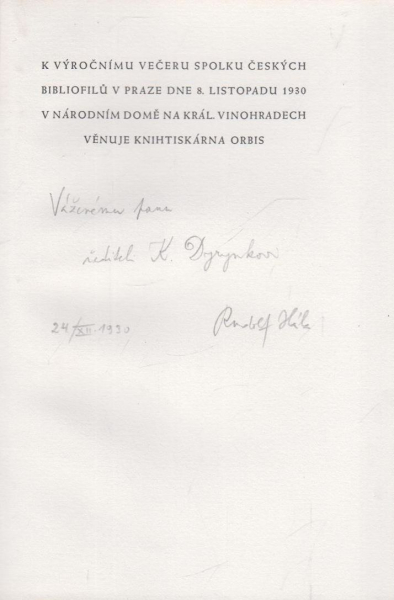 K VÝROČNÍMU VEČERU SPOLKU ČESKÝCH
BIBLIOFILŮ V PRAZE DNE 8. LISTOPADU 1930
V NÁRODNÍM DOMĚ NA KRÁL. VINOHRADECH
VĚNUJE KNIHTISKÁRNA ORBIS
Váženému panu
řediteli K. Dyrynkovi
24/XII. 1930 Rudolf Hála